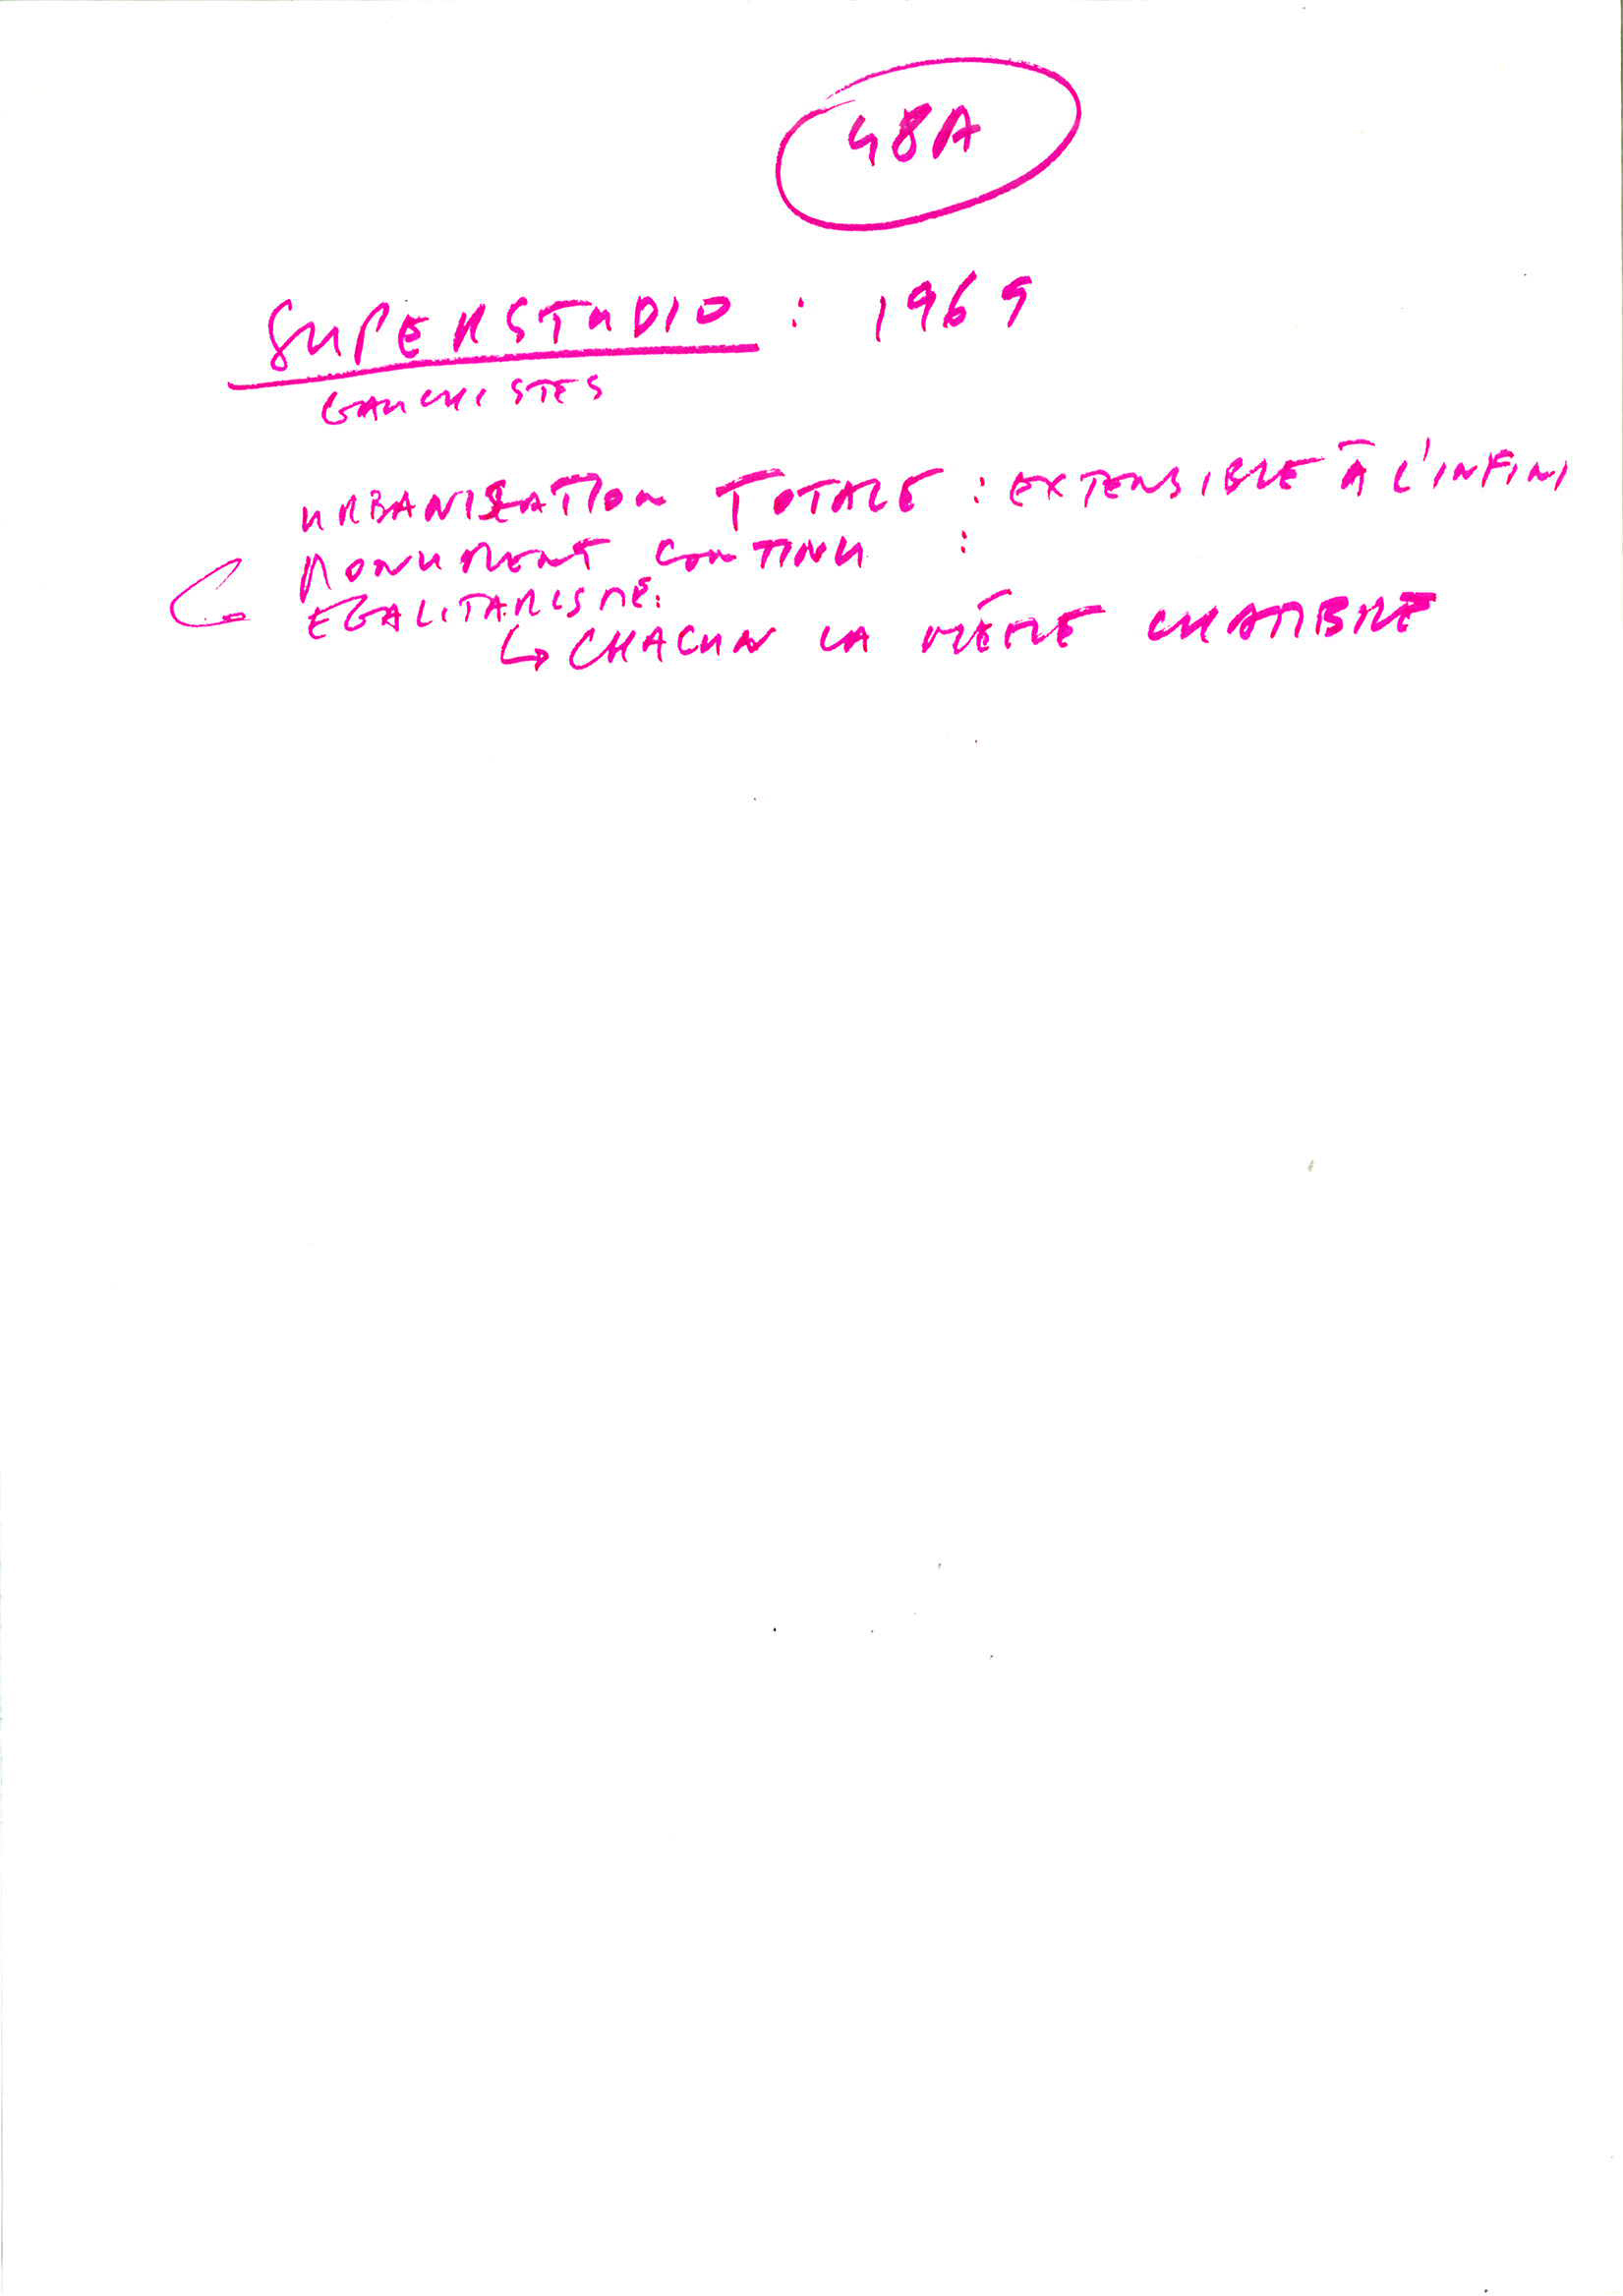 48A
SUPERSTUDIO : 1969
GAUCHISTES
URBANISATION TOTALE : EXTENSIBLE À L'INFINI
MONUMENT CONTINU :
EGALITARISME :
↳ CHACUN LA MÊME CHAMBRE